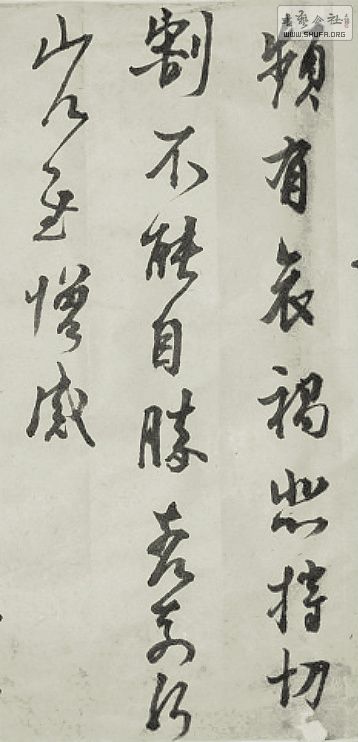 頻有哀禍悲摧切
割不能自勝奈何奈何
省慰增感
书艺公社
WWW.SHUFA.ORG